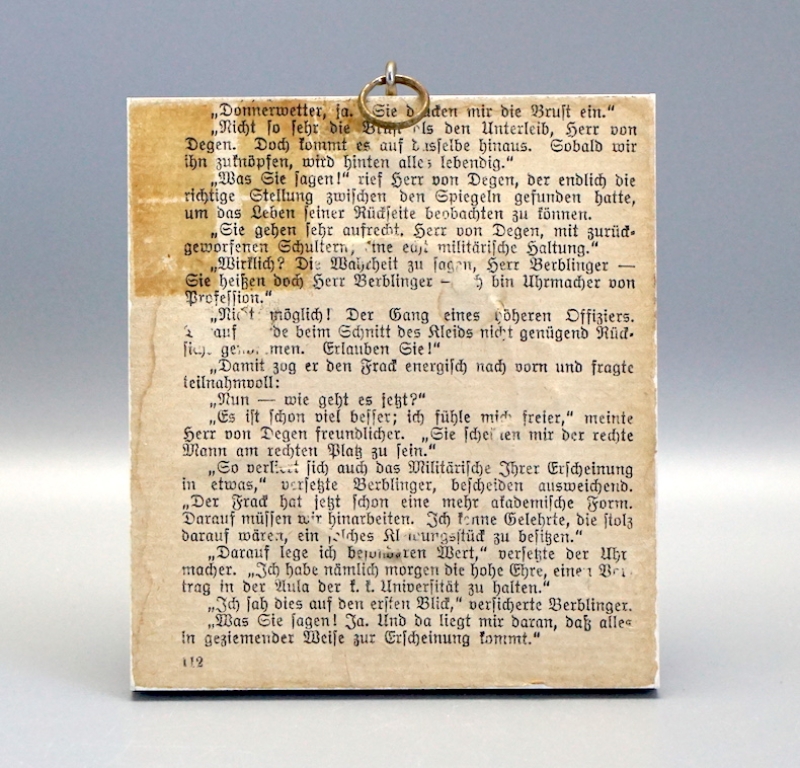 „Donnerwetter, ja. Sie drücken mir die Brust ein.“
„Nicht so sehr die Brust als den Unterleib, Herr von
Degen. Doch kommt es auf dasselbe hinaus. Sobald wir
ihn zuknöpfen, wird hinten alles lebendig.“
„Was Sie sagen!“ rief Herr von Degen, der endlich die
richtige Stellung zwischen den Spiegeln gefunden hatte,
um das Leben seiner Rückseite beobachten zu können.
„Sie gehen sehr aufrecht, Herr von Degen, mit zurück-
geworfenen Schultern, eine echt militärische Haltung.“
„Wirklich? Die Wahrheit zu sagen, Herr Berblinger —
Sie heißen doch Herr Berblinger — ich bin Uhrmacher von
Profession.“
„Nicht möglich! Der Gang eines höheren Offiziers.
auf beim Schnitt des Kleids nicht genügend Rück-
sicht genommen. Erlauben Sie!“
„Damit zog er den Frack energisch nach vorn und fragte
teilnahmvoll:
„Nun — wie geht es jetzt?“
„Es ist schon viel besser; ich fühle mich freier,“ meinte
Herr von Degen freundlicher. „Sie scheinen mir der rechte
Mann am rechten Platz zu sein.“
„So verliert sich auch das Militärische Ihrer Erscheinung
in etwas,“ versetzte Berblinger, bescheiden ausweichend.
„Der Frack hat jetzt schon eine mehr akademische Form.
Darauf müssen wir hinarbeiten. Ich kenne Gelehrte, die stolz
darauf wären, ein solches Kleidungsstück zu besitzen.“
„Darauf lege ich besonderen Wert,“ versetzte der Uhr
macher. „Ich habe nämlich morgen die hohe Ehre, einen Vor-
trag in der Aula der k. k. Universität zu halten.“
„Ich sah dies auf den ersten Blick,“ versicherte Berblinger.
„Was Sie sagen! Ja. Und da liegt mir daran, daß alles
in geziemender Weise zur Erscheinung kommt.“
112